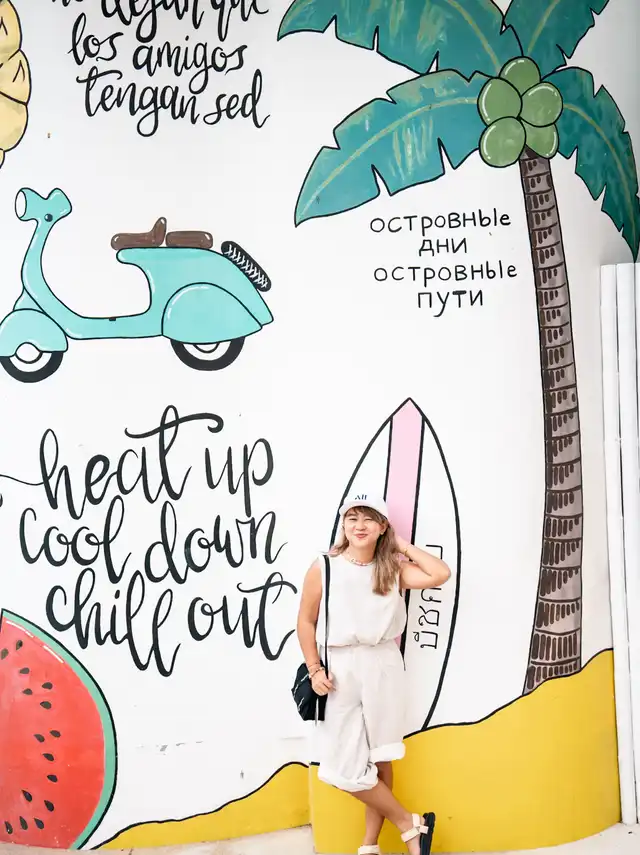 dejan que
los amigos
tengan sed
островные
дни
островные
пути
heat up
cool down
chill out